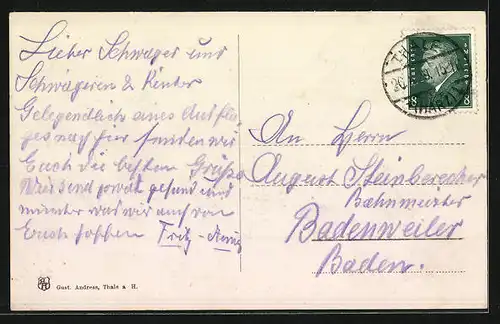 Lieber Schwager und
Schwägerin & Kinder
Gelegendlich eines Ausflu-
ges nach hier senden wir
Euch die besten Grüße
Wir sind sowat gesund und
munter was wir auch von
Euch hoffen Fritz -
An Herrn
August Steinbrecher
Bahnmeister
Badenweiler
Baden.
Gust. Andress, Thale a H.
THALE
(HARZ)
8 8